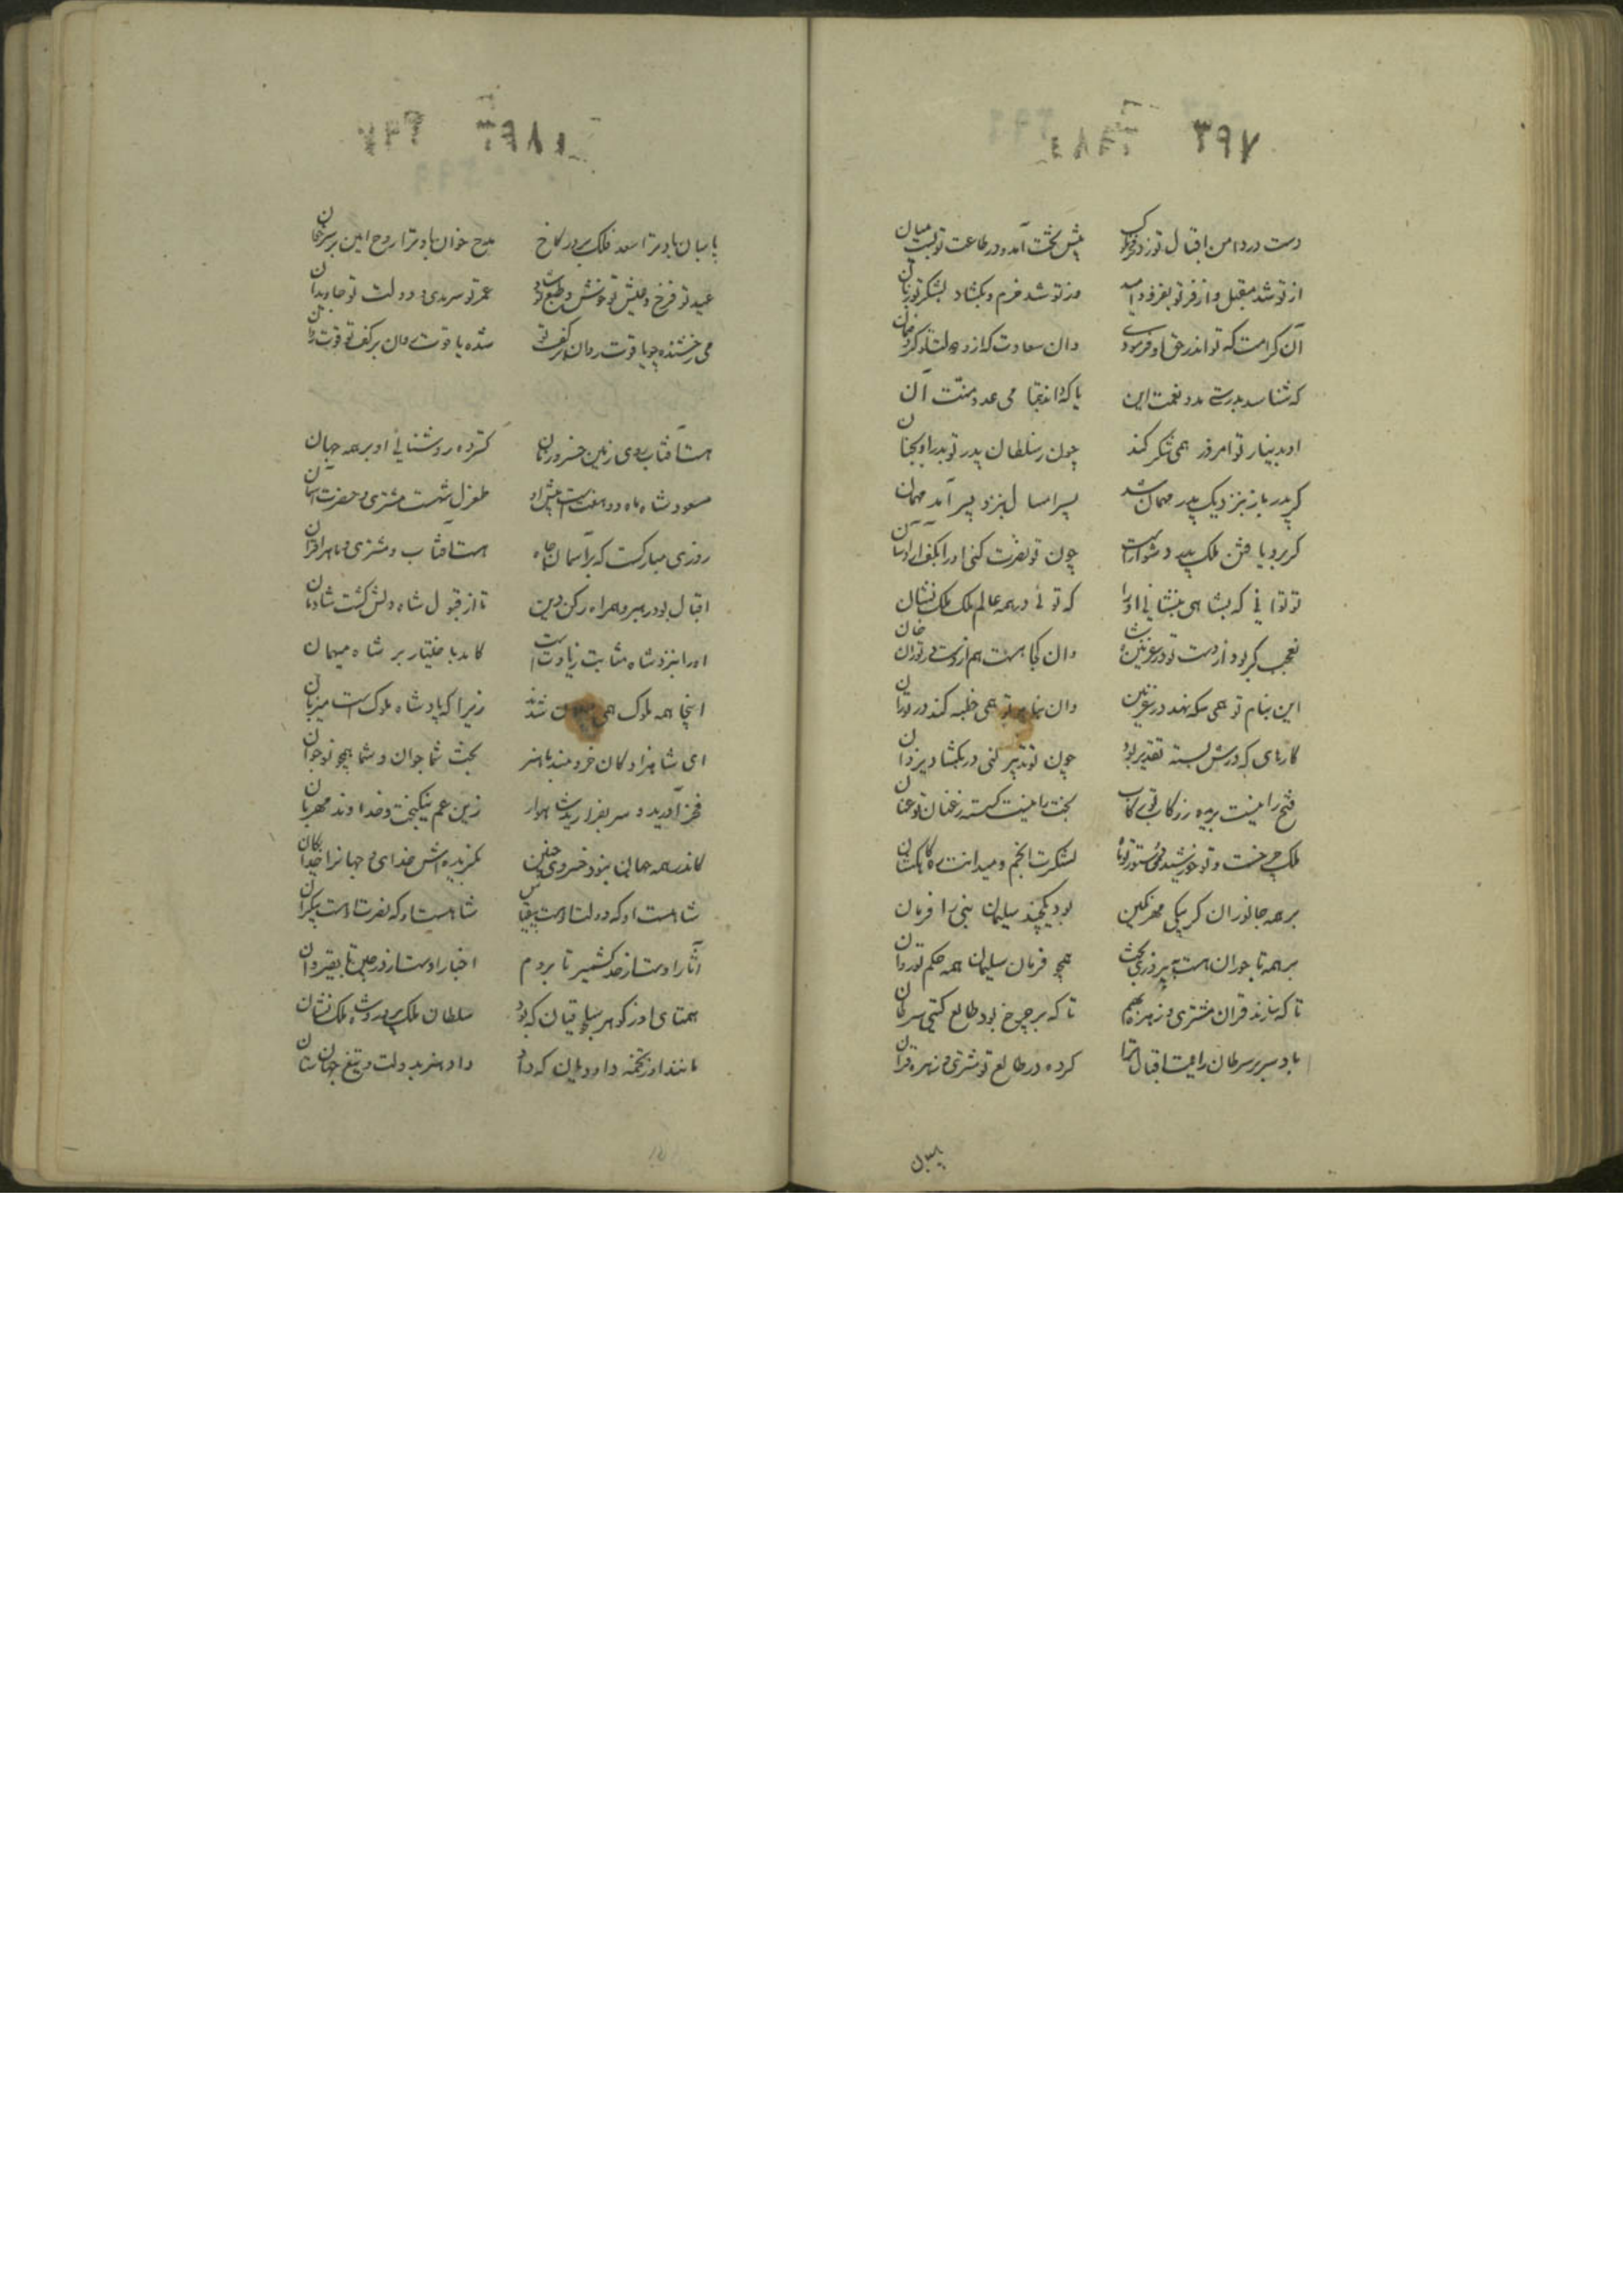 ۳۹۷
دست در دامن اقبال تو زد فخرالملک پیش تخت آمد و در طاعت تو بست میان
از تو شد مقبل و از فر تو بفزود امید وز تو شد خرم و بگشاد بشکر تو زبان
آن کرامت که تو اندر حق او فرمودی وان سعادت که ز دولت تو کرد ضمان
که شناسد بدرستی مدد نعمت این یا که داند بتمامی عدد منت آن
او بدینار تو امروز همی شکر کند چون ز سلطان پدر تو پدر او بجنان
گر پدر باز بنزدیک پدر مهمان شد پسر امسال بنزد پسر آمد مهمان
گر برو یافتن ملک پدر دشوارست چون تو نصرت کنی او را بکف آرد آسان
تو توانی که بشاهی بنشانی او را که توئی در همه عالم ملک ملک نشان
نه عجب گر بود از دست تو در غزنین شاه وان کجا هست هم از دست تو در توران خان
این بنام تو همی سکه نهد در غزنین وان بنام تو همی خطبه کند در توران
کارهای که درش بسته تقدیر بود چون تو تدبیر کنی در بگشاید یزدان
فتح را نیست بریده ز رکاب تو رکاب بخت را نیست گسسته ز عنان تو عنان
ملک چرخست و تو خورشیدی و دستور تو ماه لشکرت انجم و میدانت ره کاهکشان
بر همه جانوران گر بیکی مهر نگین بود یکچند سلیمان نبی را فرمان
بر همه تاجوران هست به پیروزی بخت همچو فرمان سلیمان همه حکم تو روان
تا که سازند قران مشتری و زهره بهم تا که بر چرخ بود طالع گیتی سرطان
باد سر بر سرطان رایت اقبال ترا کرده در طالع تو مشتری و زهره قران
پاسبان باد ترا سعد فلک بر در کاخ مدح خوان باد ترا روح امین بر سر خوان
عید تو فرخ و عیش تو خوش و طبع تو شاد عمر تو سرمدی و دولت تو جاویدان
می رخشنده چو یاقوت روان بر کف تو شده یاقوت روان بر کف تو قوت روان
هست آفتاب روی زمین خسرو زمان گسترده روشنائی او بر همه جهان
مسعود شاه ماه دو هفته است پیش او طغرل شهست مشتری و حضرت آسمان
روزی مبارکست که بر آسمان جاه هست آفتاب و مشتری و ماه را قران
اقبال بود رهبر و همراه رکن دین تا از قبول شاه دلش گشت شادمان
او را بنزد شاه مثابت زیادتست کامد باختیار بر شاه میهمان
اینجا همه ملوک همی میهمان شدند زیرا که پادشاه ملوک است میزبان
ای شاهزادگان خردمند با هنر بخت شما جوان و شما همچو نوجوان
فخر آورید و سر بفرازید شاهوار زین عم نیکبخت و خداوند مهربان
کاندر همه جهان نبود خسروی چنین بگزیده اش خدای و جهانرا خدایگان
شاهست او که دولت او هست بی قیاس شاهست او که نصرت او هست بیکران
آثار اوست از حد کشمیر تا بروم اخبار اوست از در چین تا بقیروان
همتای او ز گوهر سلجوقیان که بود سلطان ملک پرور و شاه ملک نشان
مانند او ز تخمه داودیان که داد داد هنر بدولت و تیغ جهان ستان